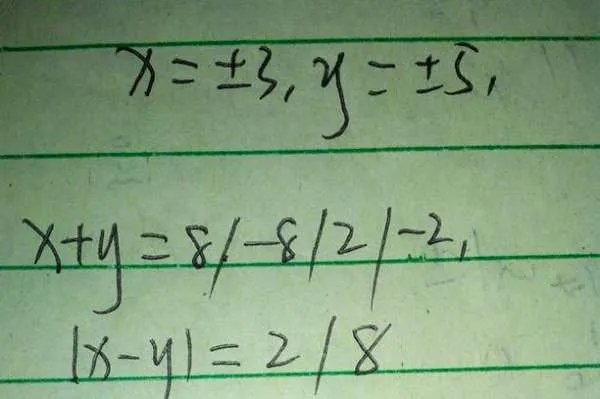 x=±3, y=±5,
x+y=8/-8/2/-2,
|x-y|=2/8